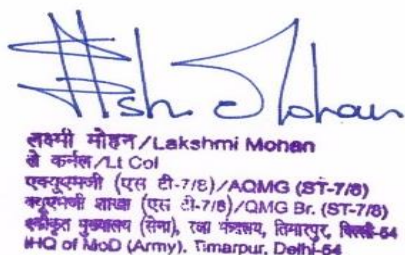 Lksh. Mohan
लक्ष्मी मोहन/Lakshmi Mohan
ले कर्नल/Lt Col
एक्यूएमजी (एस टी-7/8)/AQMG (ST-7/8)
क्यूएमजी शाखा (एस टी-7/8)/QMG Br. (ST-7/8)
एकीकृत मुख्यालय (सेना), रक्षा मंत्रालय, तिमारपुर, दिल्ली-54
IHQ of MoD (Army), Timarpur, Delhi-54